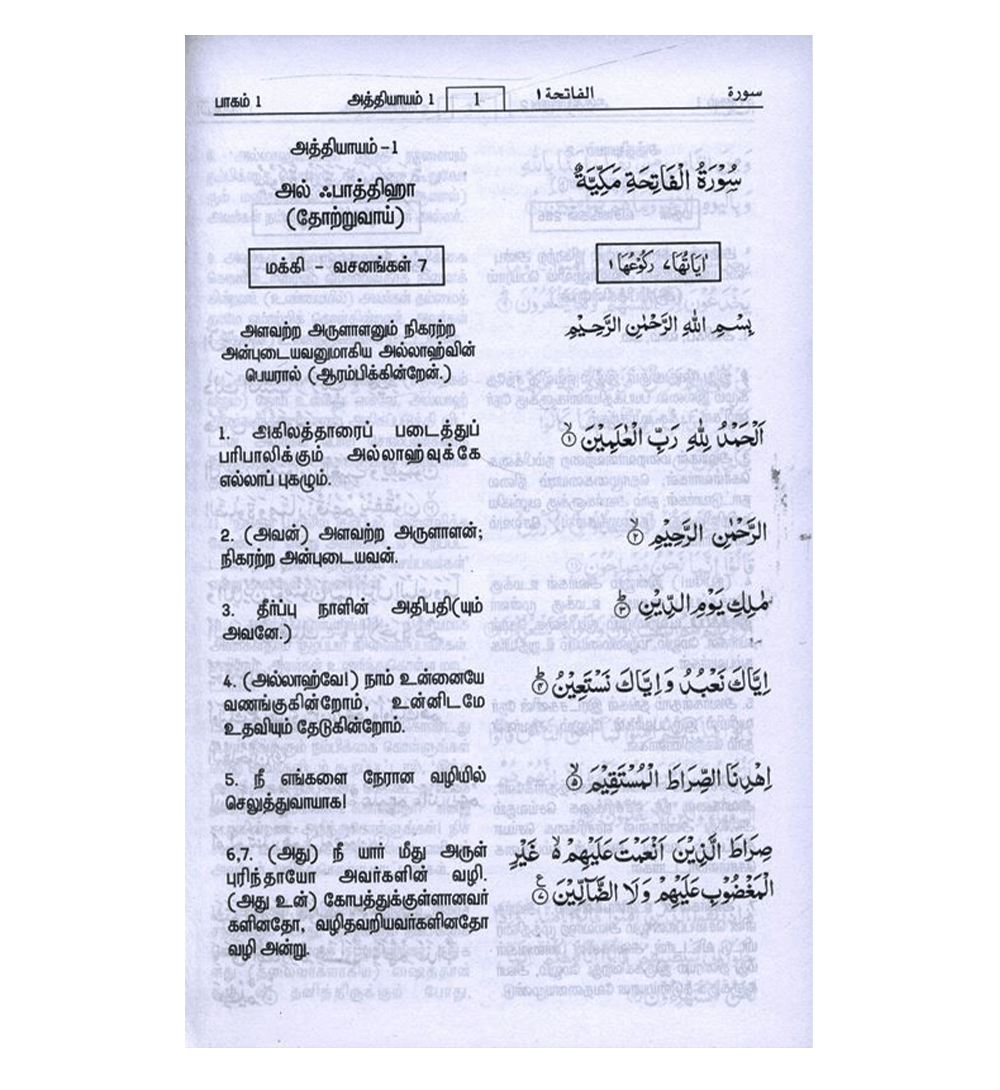 பாகம் 1 அத்தியாயம் 1 1 الفاتحة ١ سورة
அத்தியாயம் -1
அல் ஃபாத்திஹா
(தோற்றுவாய்)
மக்கி - வசனங்கள் 7
அளவற்ற அருளாளனும் நிகரற்ற
அன்புடையவனுமாகிய அல்லாஹ்வின்
பெயரால் (ஆரம்பிக்கின்றேன்.)
1. அகிலத்தாரைப் படைத்துப்
பரிபாலிக்கும் அல்லாஹ்வுக்கே
எல்லாப் புகழும்.
2. (அவன்) அளவற்ற அருளாளன்;
நிகரற்ற அன்புடையவன்.
3. தீர்ப்பு நாளின் அதிபதி(யும்
அவனே.)
4. (அல்லாஹ்வே!) நாம் உன்னையே
வணங்குகின்றோம், உன்னிடமே
உதவியும் தேடுகின்றோம்.
5. நீ எங்களை நேரான வழியில்
செலுத்துவாயாக!
6,7. (அது) நீ யார் மீது அருள்
புரிந்தாயோ அவர்களின் வழி.
(அது உன்) கோபத்துக்குள்ளானவர்
களினதோ, வழிதவறியவர்களினதோ
வழி அன்று.
سُوْرَةُ الْفَاتِحَةِ مَكِّيَّةٌ
اٰيَاتُهَا ٧ رُكُوْعُهَا ١
بِسْمِ اللّٰهِ الرَّحْمٰنِ الرَّحِيْمِ
اَلْحَمْدُ لِلّٰهِ رَبِّ الْعٰلَمِيْنَ ۙ‏ ﴿١﴾
الرَّحْمٰنِ الرَّحِيْمِ ۙ‏ ﴿٢﴾
مٰلِكِ يَوْمِ الدِّيْنِ ؕ‏ ﴿٣﴾
اِيَّاكَ نَعْبُدُ وَاِيَّاكَ نَسْتَعِيْنُ ؕ‏ ﴿٤﴾
اِهْدِنَا الصِّرَاطَ الْمُسْتَقِيْمَ ۙ‏ ﴿٥﴾
صِرَاطَ الَّذِيْنَ اَنْعَمْتَ عَلَيْهِمْ ۙ غَيْرِ
الْمَغْضُوْبِ عَلَيْهِمْ وَلَا الضَّآلِّيْنَ ﴿٧﴾